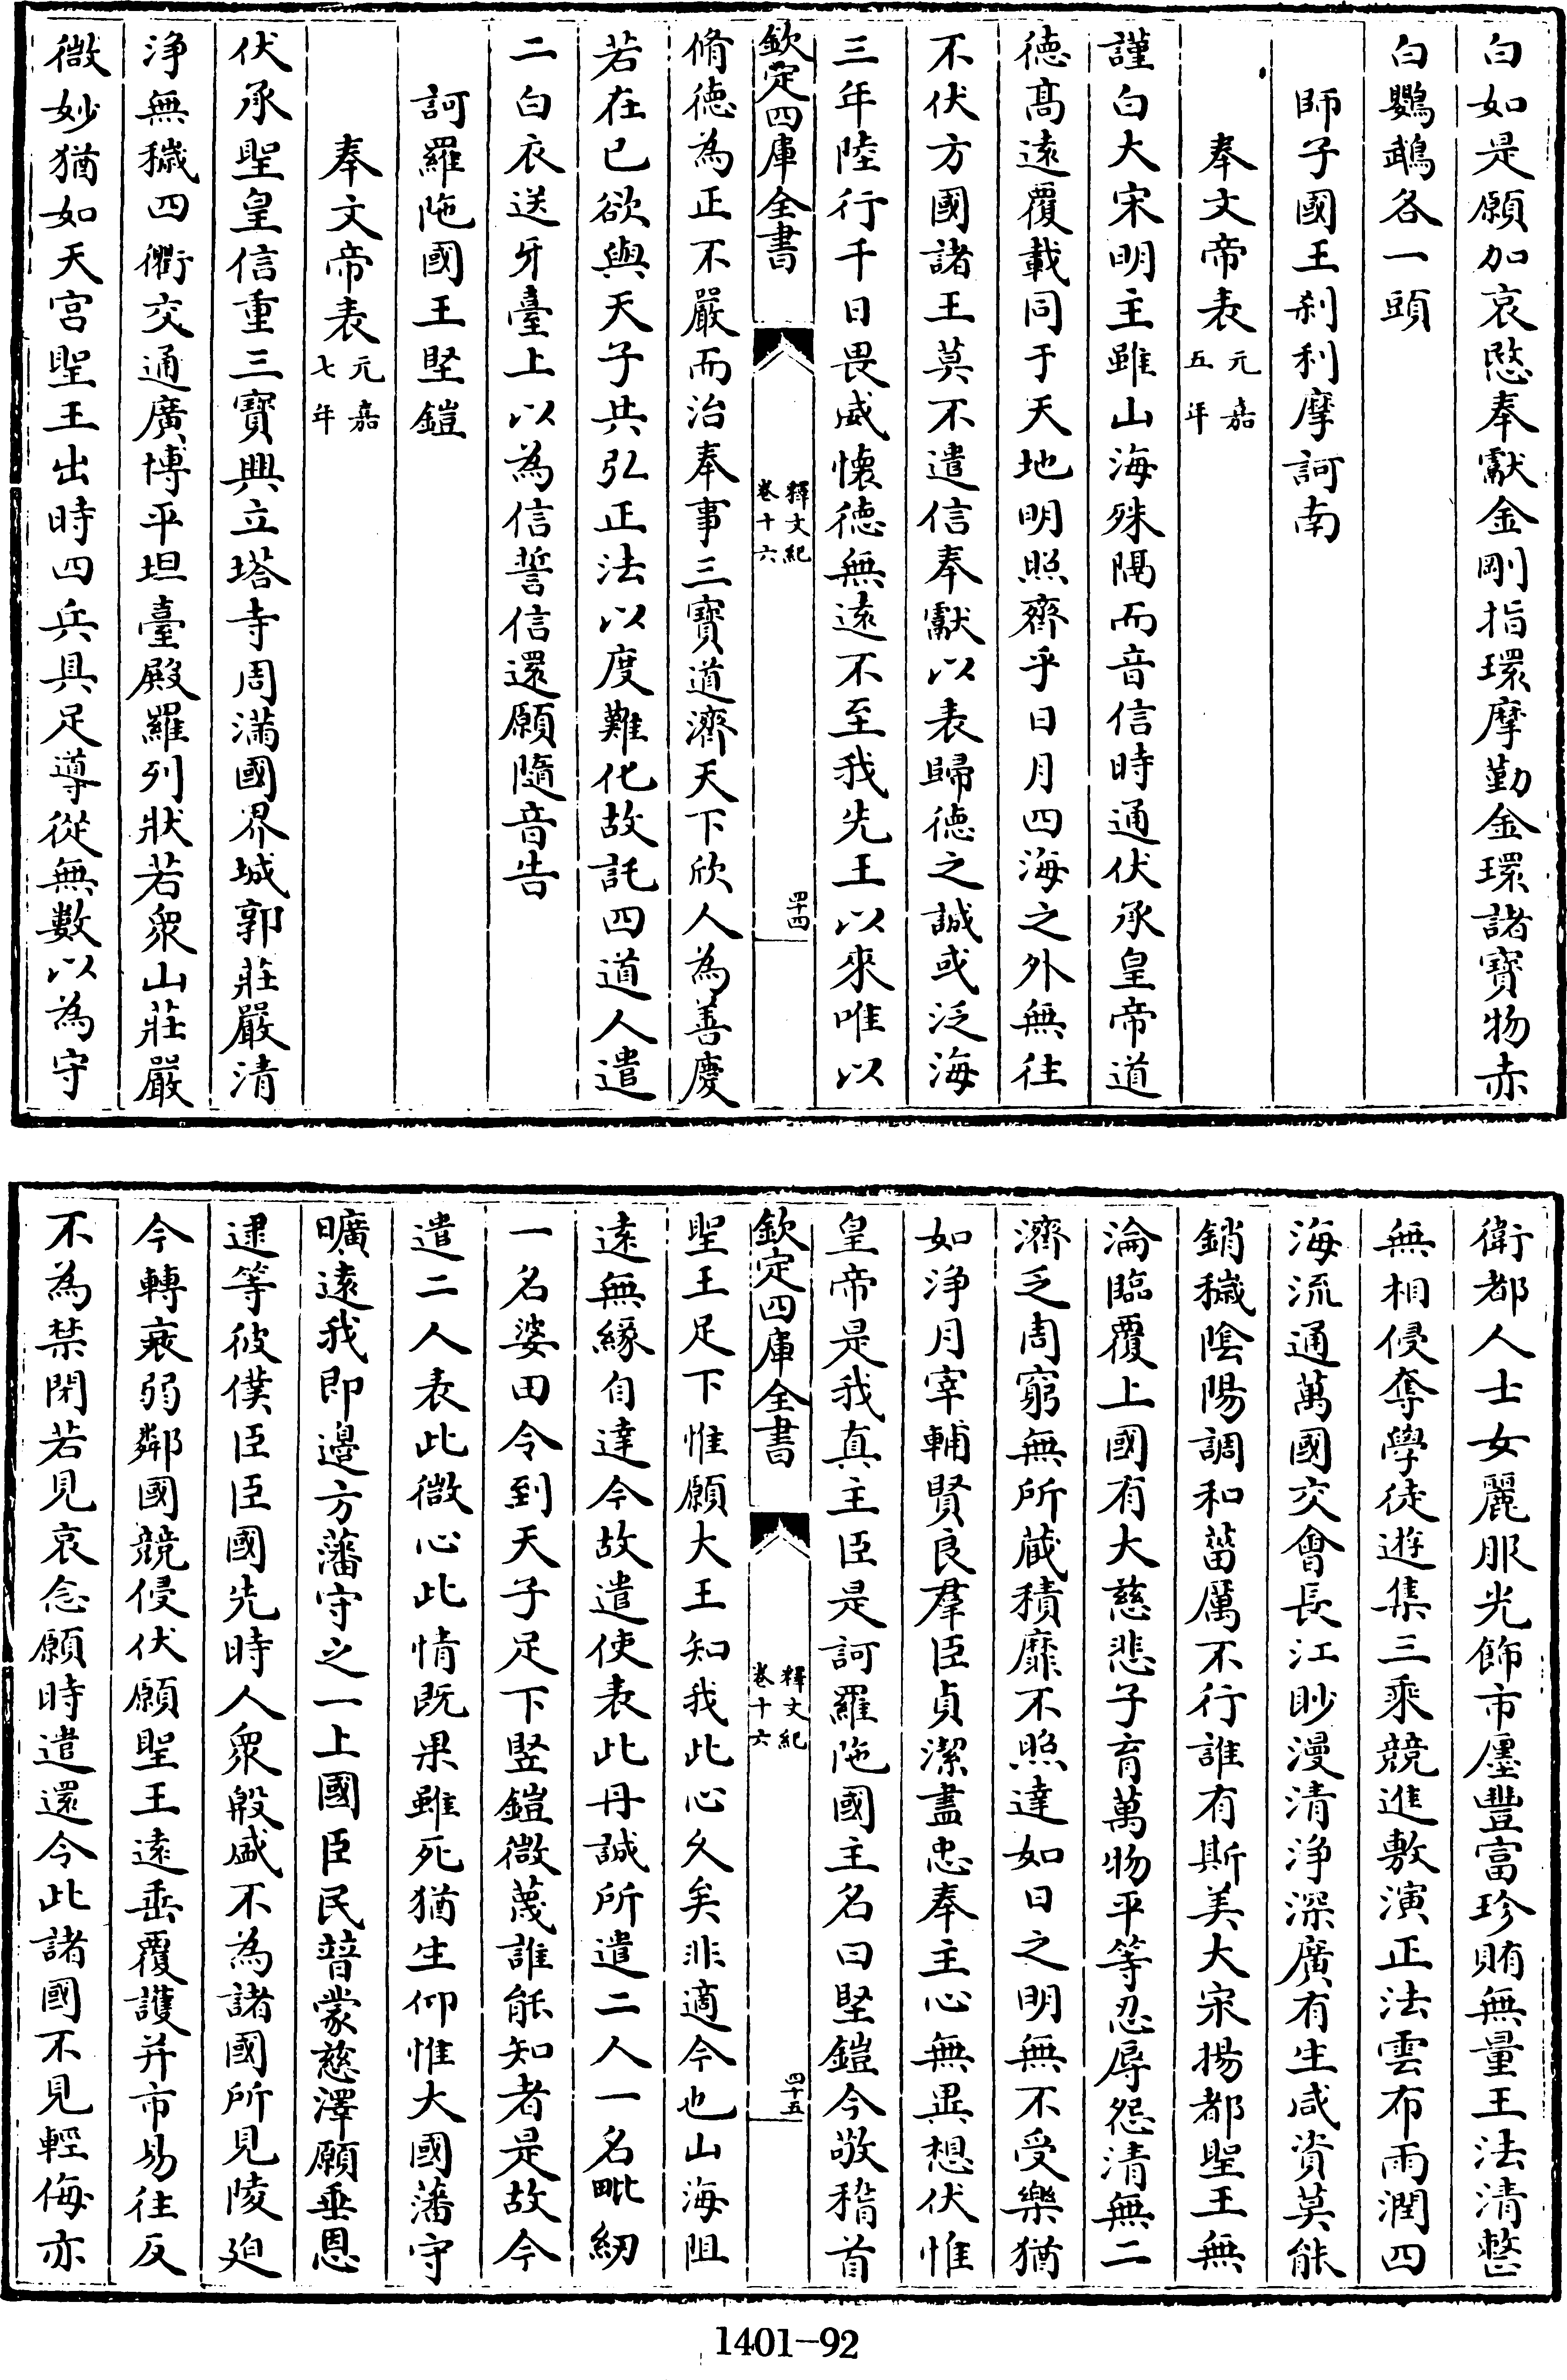 白如是願加哀愍奉獻金剛指環摩勤金環諸寶物赤
白鸚鵡各一頭
師子國王刹利摩訶南
奉文帝表元嘉五年
謹白大宋明主雖山海殊隔而音信時通伏承皇帝道
徳髙逺覆載同于天地明照齊乎日月四海之外無往
不伏方國諸王莫不遣信奉獻以表歸徳之誠或泛海
三年陸行千日畏威懐徳無逺不至我先王以來唯以
欽定四庫全書
釋文紀
卷十六
四十四
脩徳為正不嚴而治奉事三寶道濟天下欣人為善慶
若在已欲與天子共弘正法以度難化故託四道人遣
二白衣送牙臺上以為信誓信還願隨音告
訶羅陁國王堅鎧
奉文帝表元嘉七年
伏承聖皇信重三寶興立塔寺周滿國界城郭莊嚴清
浄無穢四衢交通廣博平坦臺殿羅列狀若衆山莊嚴
微妙猶如天宫聖王出時四兵具足導從無數以為守
衛都人士女麗服光飾市㕓豐富珍賄無量王法清整
無相侵奪學徒遊集三乘競進敷演正法雲布雨潤四
海流通萬國交會長江眇漫清浄深廣有生咸資莫能
銷穢陰陽調和菑厲不行誰有斯美大宋揚都聖王無
淪臨覆上國有大慈悲子育萬物平等忍辱怨清無二
濟乏周窮無所蔵積靡不照達如日之明無不受樂猶
如浄月宰輔賢良羣臣貞潔盡忠奉主心無異想伏惟
皇帝是我真主臣是訶羅陁國主名曰堅鎧今敬稽首
欽定四庫全書
釋文紀
卷十六
四十五
聖王足下惟願大王知我此心久矣非適今也山海阻
逺無緣自達今故遣使表此丹誠所遣二人一名毗紉
一名婆田令到天子足下堅鎧微蔑誰能知者是故今
遣二人表此微心此情既果雖死猶生仰惟大國藩守
曠逺我即邊方藩守之一上國臣民普蒙慈澤願垂恩
逮等彼僕臣臣國先時人衆殷盛不為諸國所見陵廹
今轉衰弱鄰國競侵伏願聖王逺垂覆護并市易往反
不為禁閉若見哀念願時遣還令此諸國不見輕侮亦
1401-92